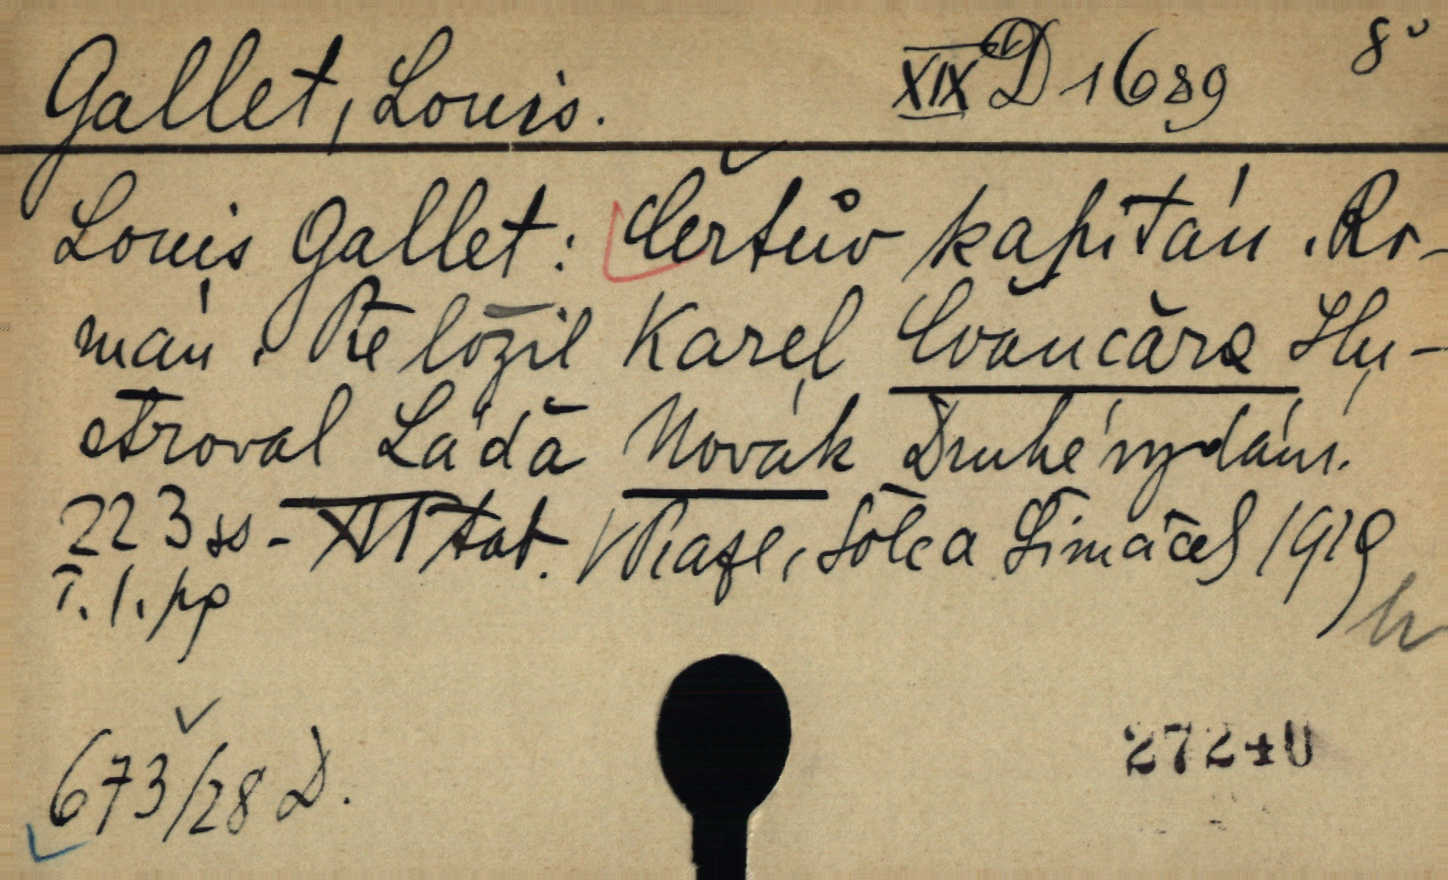 Gallet, Louis. XIX D 1689 8°
Louis Gallet: Čertův kapitán. Ro-
mán. Přeložil Karel Cvančara Illu-
stroval Láďa Novák Druhé vydání.
223 ss - XII tab. V Praze, Šolc a Šimáček 1919
673/28 D.
27240